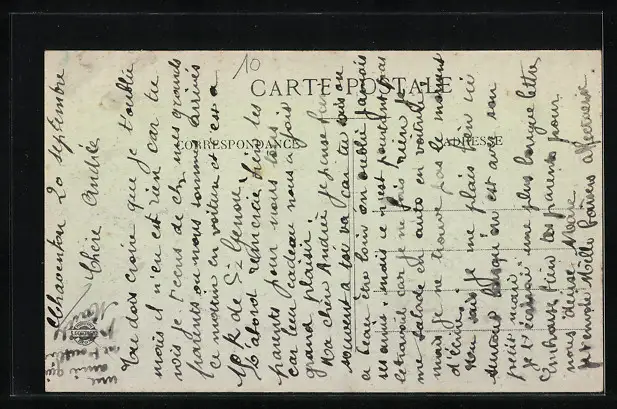 10
CARTE POSTALE
CORRESPONDANCE
ADRESSE
Charenton 20 septembre
Chère Andrée
Tu dois croire que je t'oublie
mais il n'en est rien car tu
vois je t'écris de chez mes grands
parents ou nous sommes arrivés
ce matin en voiture et c'est a
40 K de St
D'abord remercie bien tes
parents pour nous tous
car leur cadeau nous a fait
grand plaisir.
Ma chère Andrée je pense bien
souvent a toi va car tu sais on
a beau être loin on oublie jamais
ses amis. mais ce n'est pourtant pas
le travail car je ne fais rien je
me balade en auto en voiture
mais je ne trouve pas le moyen
d'écrire.
tu sais je me plais bien ici
surtout lorsqu'on est avec son
petit mari.
Je t'écrirai une plus longue lettre
Embrasse bien tes parents pour
nous deux.
je t'envoie Mille baisers affectueux